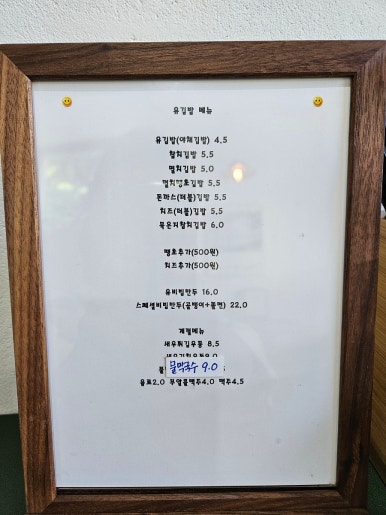 유김밥 메뉴
유김밥(야채김밥) 4.5
참치김밥 5.5
멸치김밥 5.0
멸치땡초김밥 5.5
돈까스(더블)김밥 5.5
치즈(더블)김밥 5.5
묵은지참치김밥 6.0
땡초추가(500원)
치즈추가(500원)
유비빔만두 16.0
스페셜비빔만두(골뱅이+쫄면) 22.0
계절메뉴
새우튀김우동 8.5
물막국수 9.0
음료2.0 무알콜맥주4.0 맥주4.5